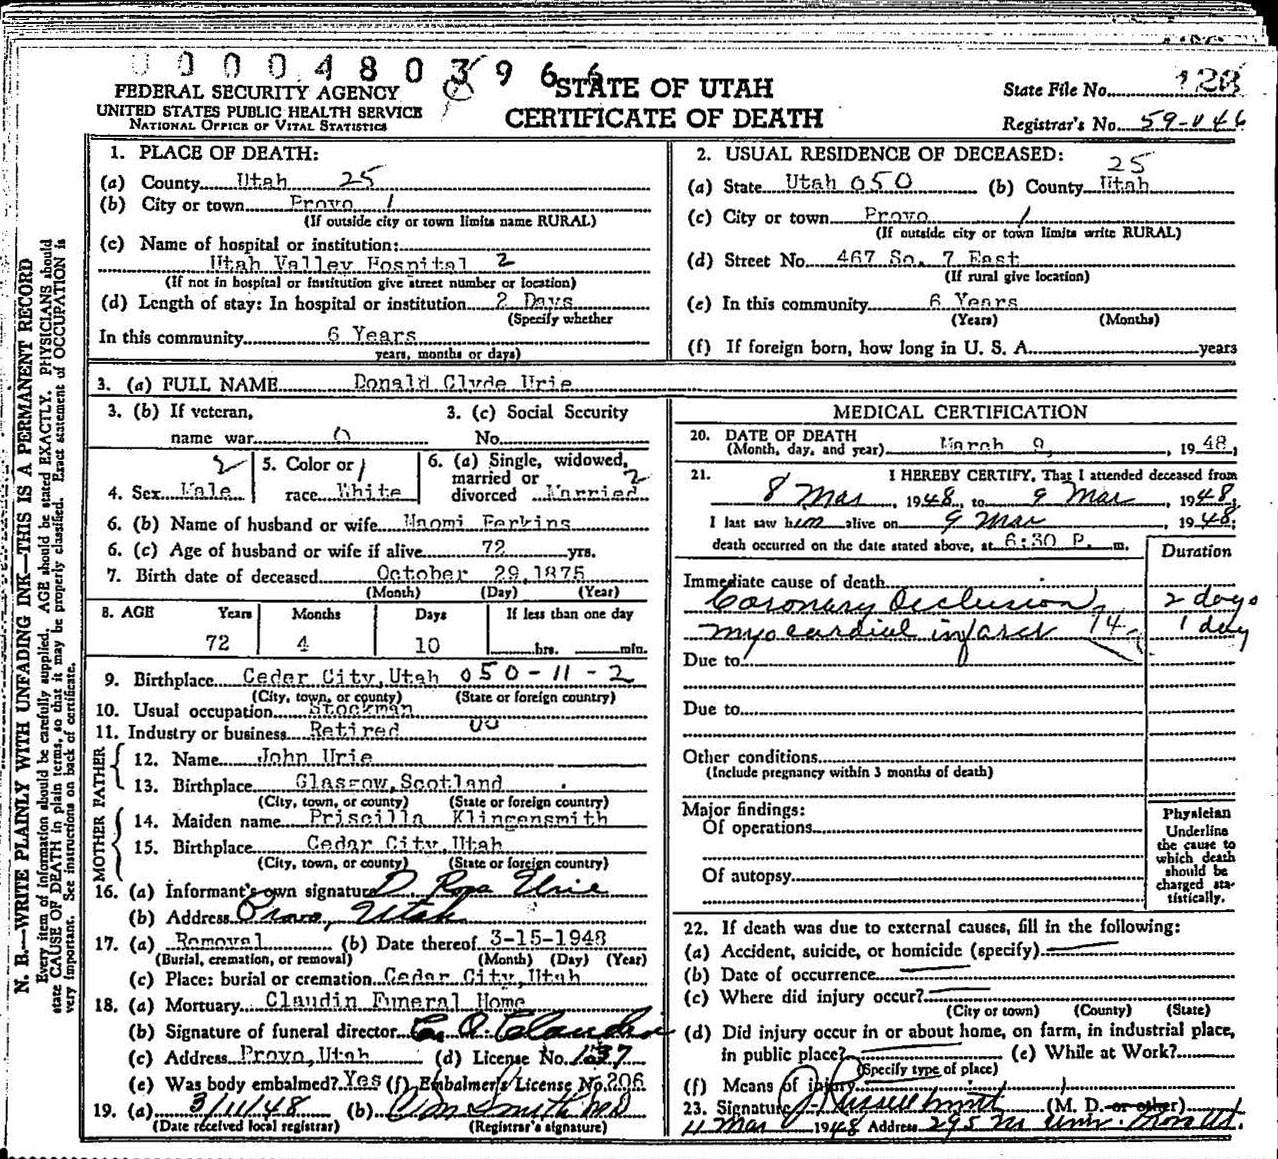 0 0 0 0 4 8 0 3 9 6 6
FEDERAL SECURITY AGENCY
UNITED STATES PUBLIC HEALTH SERVICE
NATIONAL OFFICE OF VITAL STATISTICS
STATE OF UTAH
CERTIFICATE OF DEATH
State File No. 128
Registrar's No. 59-446
N. B.—WRITE PLAINLY WITH UNFADING INK—THIS IS A PERMANENT RECORD
Every item of information should be carefully supplied. AGE should be stated EXACTLY. PHYSICIANS should
state CAUSE OF DEATH in plain terms, so that it may be properly classified. Exact statement of OCCUPATION is
very important. See instructions on back of certificate.
1. PLACE OF DEATH:
(a) County Utah 25
(b) City or town Provo 1
(If outside city or town limits name RURAL)
(c) Name of hospital or institution:
Utah Valley Hospital 2
(If not in hospital or institution give street number or location)
(d) Length of stay: In hospital or institution 2 Days
(Specify whether
In this community 6 Years
years, months or days)
2. USUAL RESIDENCE OF DECEASED:
25
(a) State Utah 050 (b) County Utah
(c) City or town Provo 1
(If outside city or town limits write RURAL)
(d) Street No. 467 So. 7 East
(If rural give location)
(e) In this community 6 Years
(Years) (Months)
(f) If foreign born, how long in U. S. A. years
3. (a) FULL NAME Donald Clyde Urie
3. (b) If veteran,
name war 0
3. (c) Social Security
No.
4. Sex Male 2
5. Color or 1
race White
6. (a) Single, widowed,
married or 2
divorced Married
6. (b) Name of husband or wife Naomi Perkins
6. (c) Age of husband or wife if alive 72 yrs.
7. Birth date of deceased October 29,1875
(Month) (Day) (Year)
8. AGE Years Months Days If less than one day
72 4 10 hrs. min.
9. Birthplace Cedar City,Utah 050-11-2
(City, town, or county) (State or foreign country)
10. Usual occupation Stockman
11. Industry or business Retired 00
FATHER
12. Name John Urie
13. Birthplace Glasgow,Scotland
(City, town, or county) (State or foreign country)
MOTHER
14. Maiden name Priscilla Klingensmith
15. Birthplace Cedar City,Utah
(City, town, or county) (State or foreign country)
16. (a) Informant's own signature D. Ross Urie
(b) Address Provo, Utah
17. (a) Removal (b) Date thereof 3-15-1948
(Burial, cremation, or removal) (Month) (Day) (Year)
(c) Place: burial or cremation Cedar City,Utah
18. (a) Mortuary Claudin Funeral Home
(b) Signature of funeral director Claudin
(c) Address Provo,Utah (d) License No. 137
(e) Was body embalmed? Yes (f) Embalmer's License No. 206
19. (a) 3/11/48 (b) Smith MD
(Date received local registrar) (Registrar's signature)
MEDICAL CERTIFICATION
20. DATE OF DEATH
(Month, day, and year) March 9, 1948;
21. I HEREBY CERTIFY, That I attended deceased from
8 Mar, 1948, to 9 Mar, 1948;
I last saw him alive on 9 Mar, 1948;
death occurred on the date stated above, at 6:30 P. m.
Duration
Immediate cause of death
Coronary Occlusion, 2 days
myocardial infarct 1 day
Due to
Due to
Other conditions
(Include pregnancy within 3 months of death)
Major findings:
Of operations
Of autopsy
Physician
Underline
the cause to
which death
should be
charged sta-
tistically.
22. If death was due to external causes, fill in the following:
(a) Accident, suicide, or homicide (specify)
(b) Date of occurrence
(c) Where did injury occur?
(City or town) (County) (State)
(d) Did injury occur in or about home, on farm, in industrial place,
in public place? (e) While at Work?
(Specify type of place)
(f) Means of injury
23. Signature J Russell Smith (M. D. or other)
11 Mar 1948 Address 295 N Univ. Provo Ut.